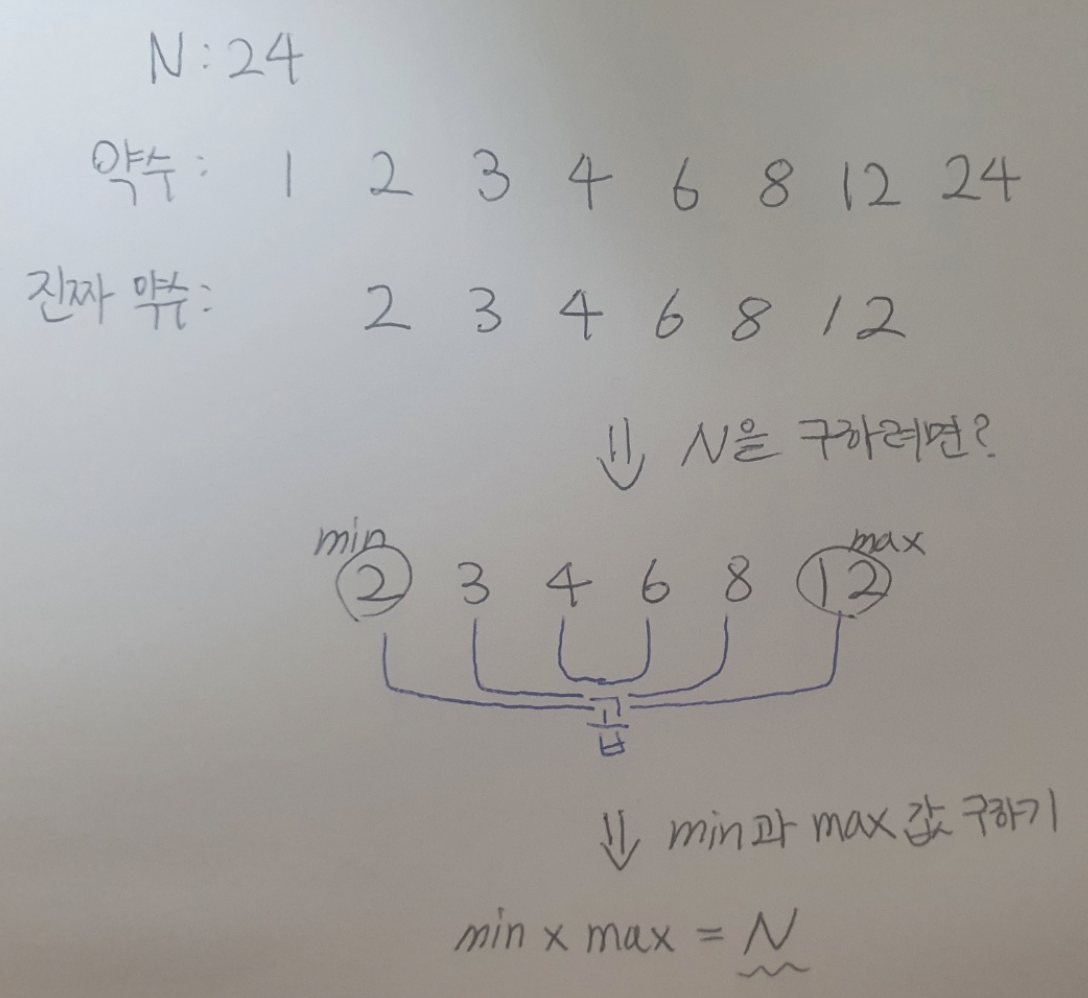 N : 24
약수 : 1 2 3 4 6 8 12 24
진짜 약수 : 2 3 4 6 8 12
⇓ N을 구하려면?
min max
2 3 4 6 8 12
곱
⇓ min과 max 값 구하기
min x max = N